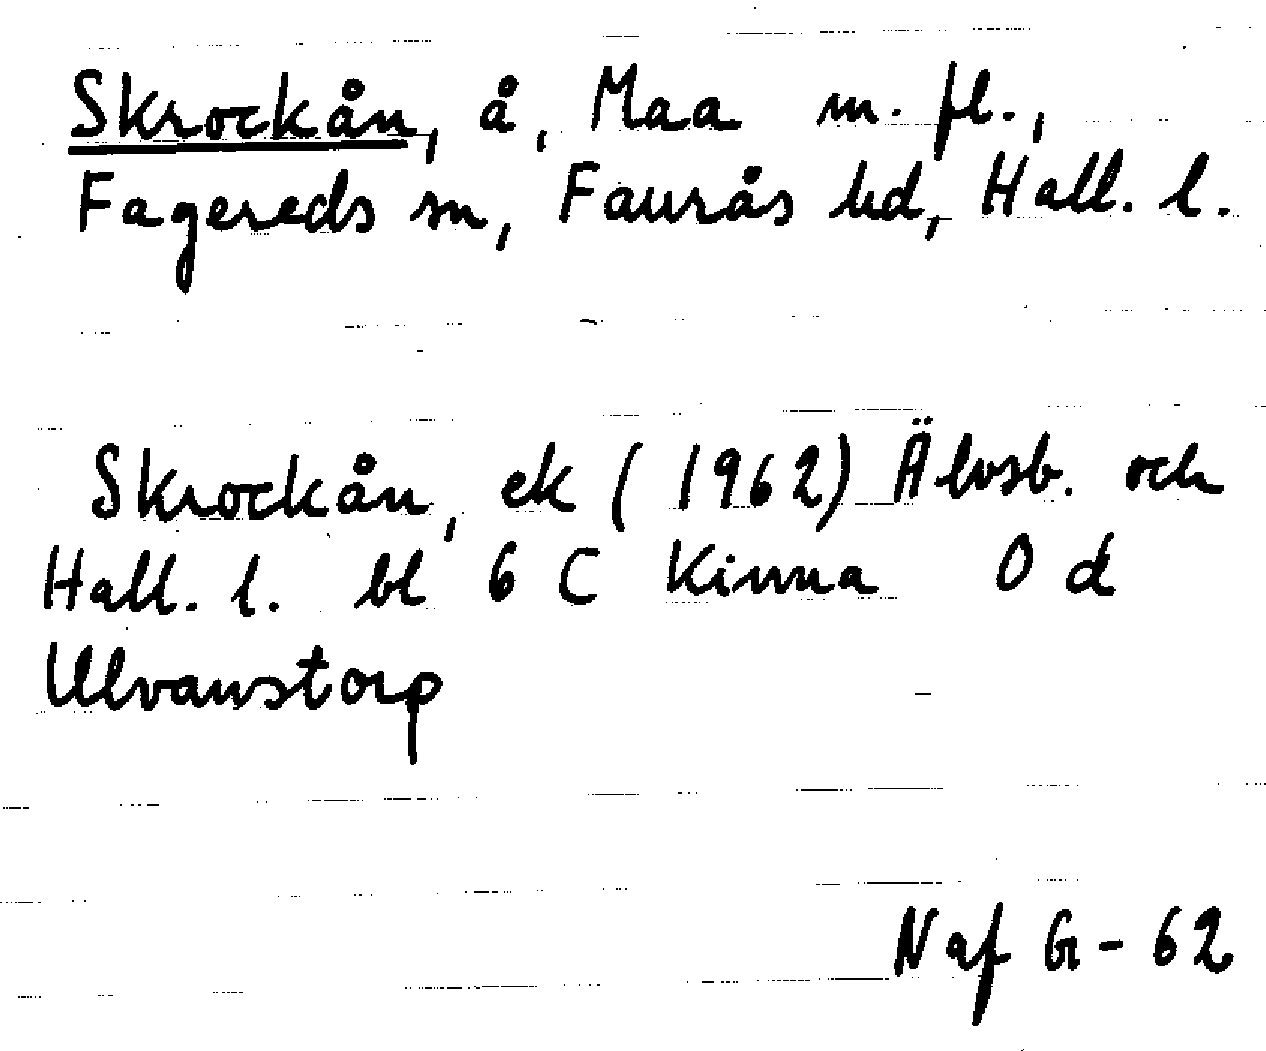 Skrockån, å, Maa m. fl.,
Fagereds sn, Faurås hd, Hall. l.
Skrockån, ek (1962) Älvsb. och
Hall. l. bl 6 C Kinna 0 d
Ulvanstorp
Naf G-62